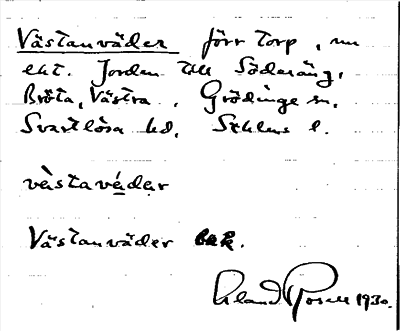 Västanväder förr torp, nu
ekt. Jorden till Söderäng,
Bröta, Västra, Grödinge sn,
Svartlösa hd, Sthlms l.
vàstavä́dər
Västanväder bek.
Erland Rosell 1930.